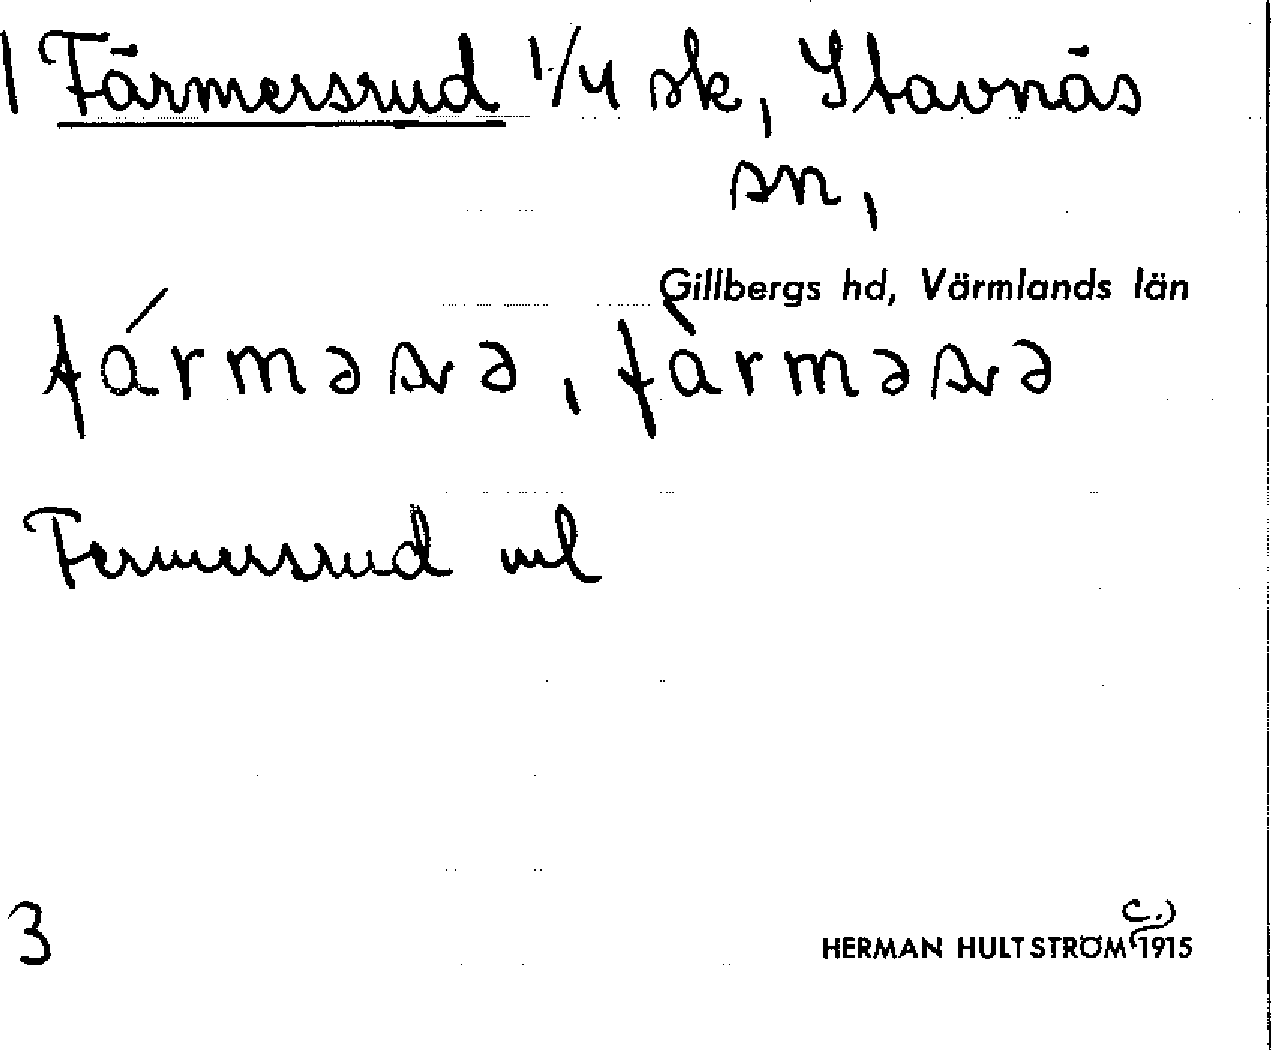 1 Färmersrud 1/4 sk, Stavnäs
sn,
Gillbergs hd, Värmlands län
fárməsrə, fàrməsrə
Fermersrud ml
3 HERMAN HULTSTRÖM (c.) 1915